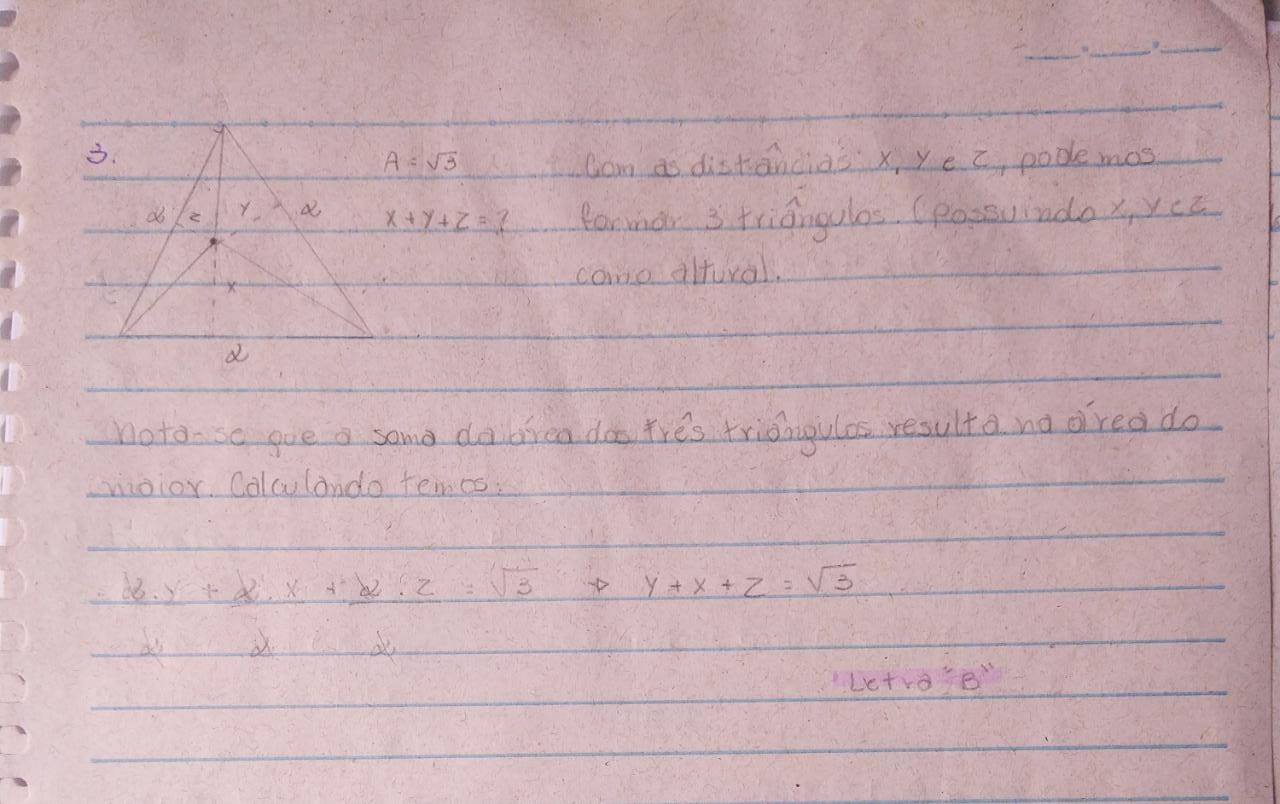 3.
A = √3
Com as distâncias x, y e z, podemos
2
z
y
2
x + y + z = ?
formar 3 triângulos. (possuindo x, y e z
x
como altura).
2
Nota-se que a soma da área dos três triângulos resulta na área do
maior. Calculando temos:
2.y + 2.x + 2.z = √3 → y + x + z = √3
2 2 2
Letra "B"